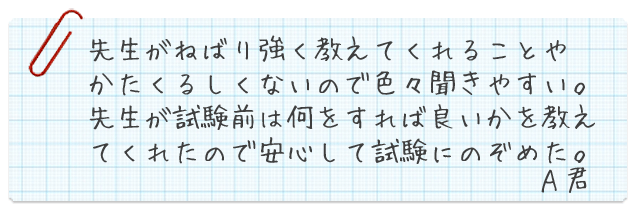 先生がねばり強く教えてくれることや
かたくるしくないので色々聞きやすい。
先生が試験前は何をすれば良いかを教え
てくれたので安心して試験にのぞめた。
A君